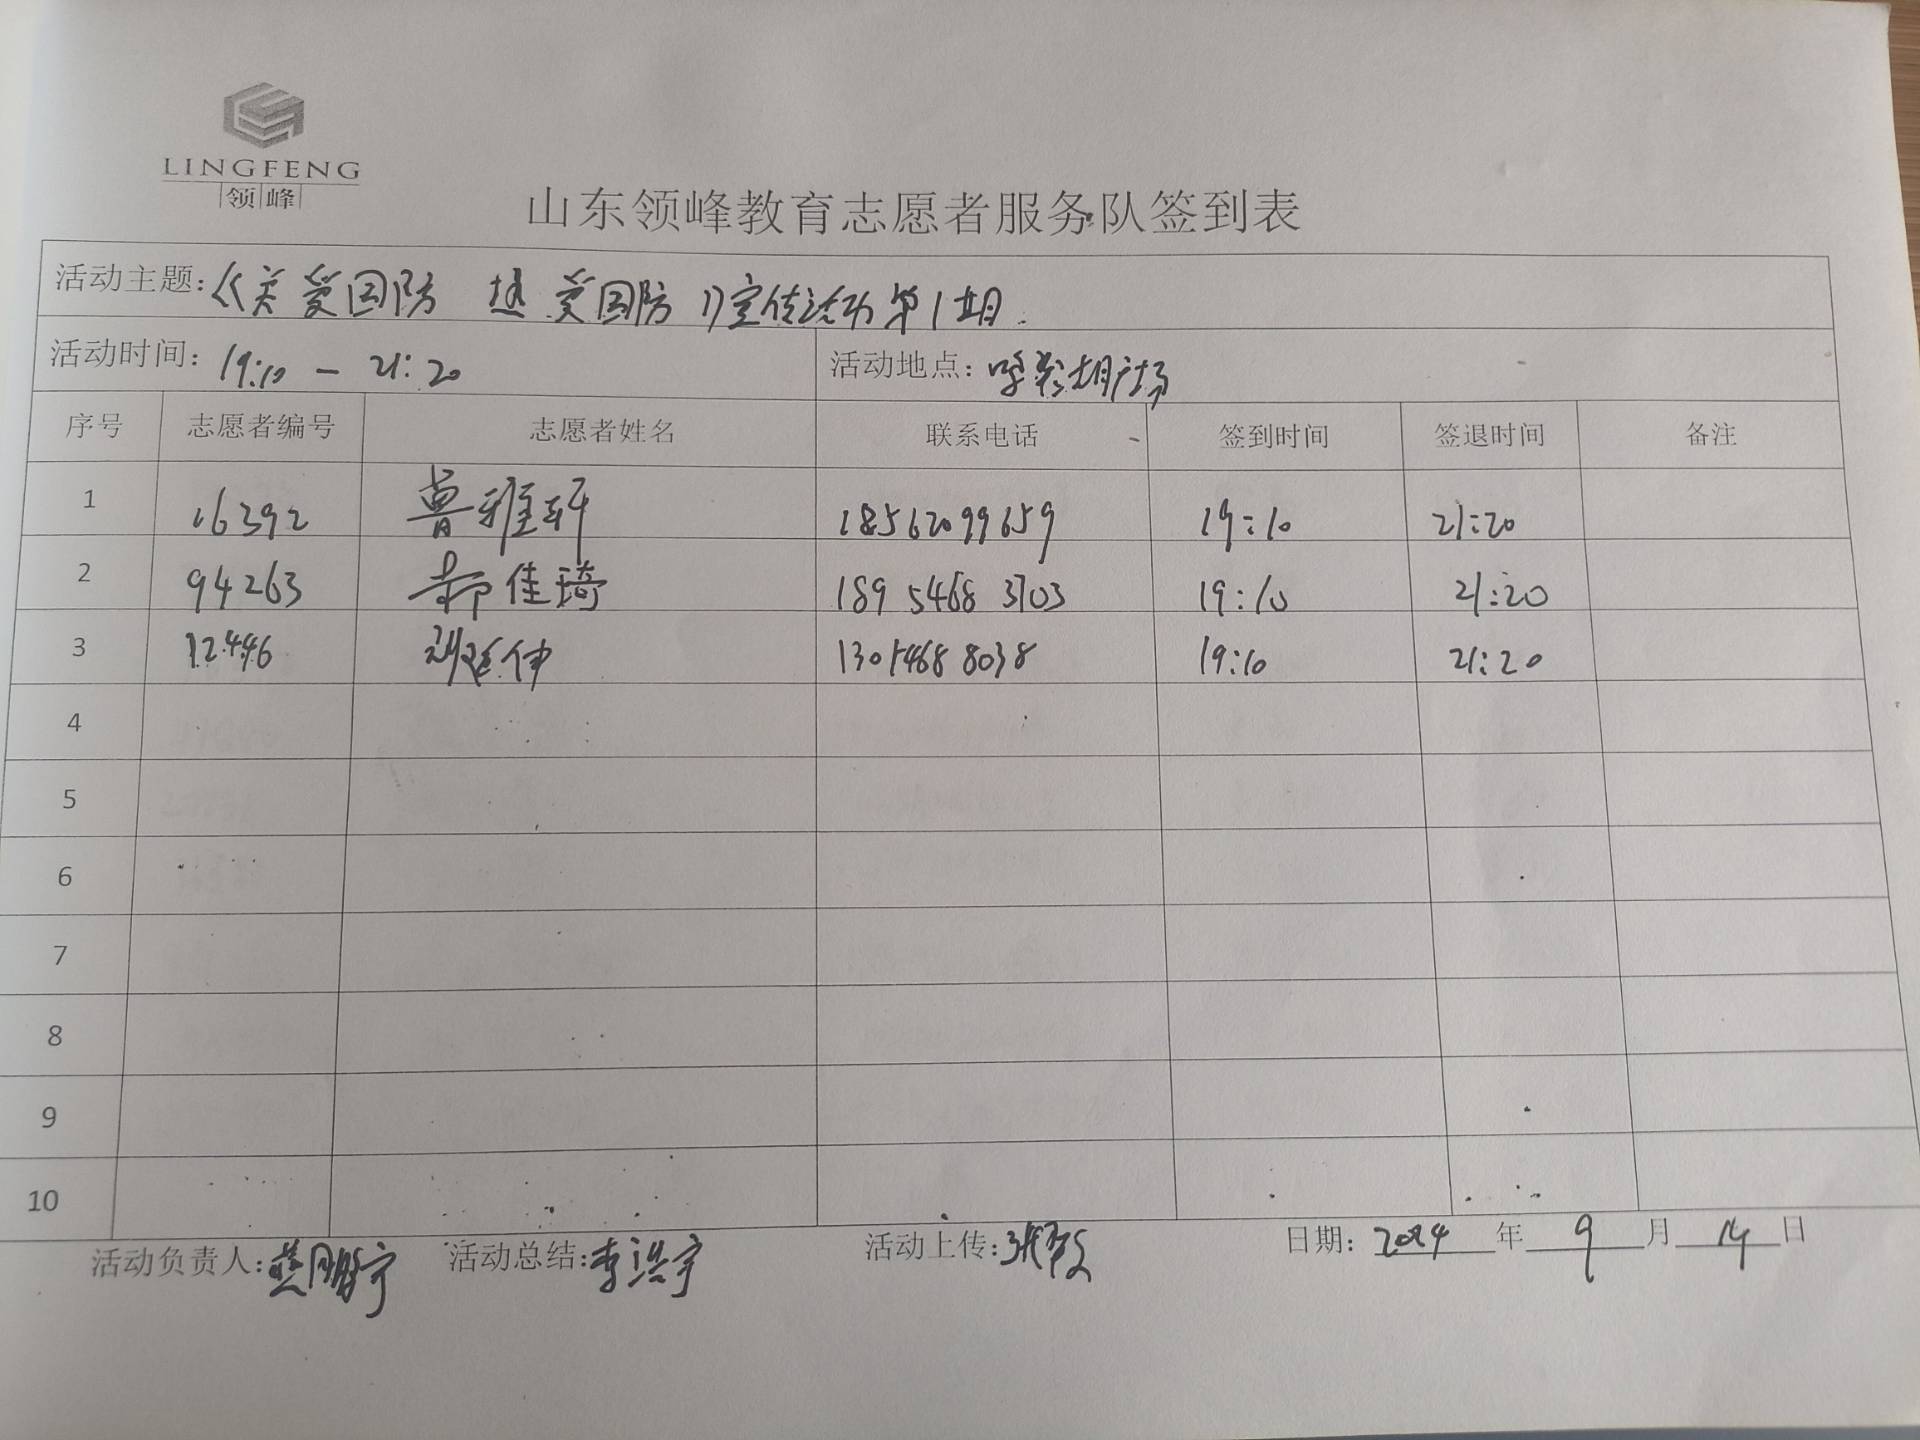 LINGFENG
领峰
山东领峰教育志愿者服务队签到表
活动主题：《关爱国防 热爱国防》宣传活动第1期.
活动时间：19:10 — 21:20 活动地点：广场
序号 志愿者编号 志愿者姓名 联系电话 签到时间 签退时间 备注
1 16392 鲁雅轩 18562099659 19:10 21:20
2 94263 郝佳琦 189 5468 3703 19:10 21:20
3 12446 刘延伟 13054688038 19:10 21:20
4
5
6
7
8
9
10
活动负责人： 活动总结：李浩宇 活动上传： 日期：2024年9月14日